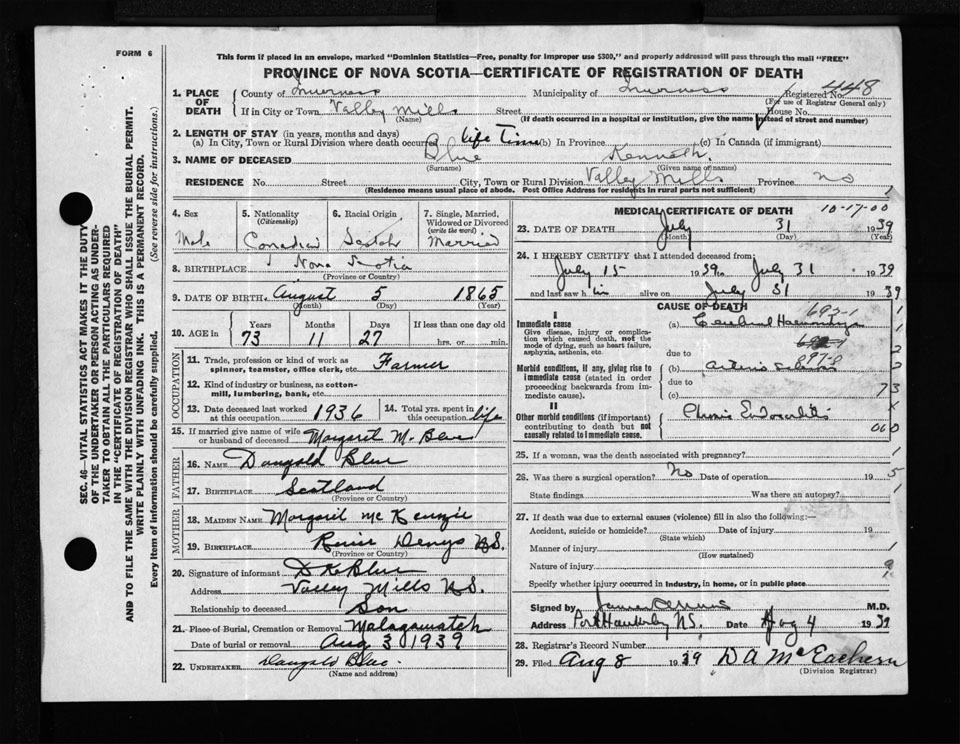 FORM 6
This form if placed in an envelope, marked "Dominion Statistics—Free, penalty for improper use $300," and properly addressed will pass through the mail "FREE"
PROVINCE OF NOVA SCOTIA—CERTIFICATE OF REGISTRATION OF DEATH
1. PLACE OF DEATH County of Inverness Municipality of Inverness Registered No. 448
(For use of Registrar General only)
If in City or Town Valley Mills Street House No.
(Name) (If death occurred in a hospital or institution, give the name instead of street and number)
2. LENGTH OF STAY (in years, months and days)
(a) In City, Town or Rural Division where death occurred life Time (b) In Province (c) In Canada (if immigrant)
3. NAME OF DECEASED Blue Kenneth
(Surname) (Given name or names)
RESIDENCE No. Street City, Town or Rural Division Valley Mills Province NS
(Residence means usual place of abode. Post Office Address for residents in rural parts not sufficient)
4. Sex Male
5. Nationality (Citizenship) Canadian
6. Racial Origin Scotch
7. Single, Married, Widowed or Divorced (write the word) Married
8. BIRTHPLACE Nova Scotia
(Province or Country)
9. DATE OF BIRTH August 5 1865
(Month) (Day) (Year)
10. AGE in Years 73 Months 11 Days 27 If less than one day old hrs. or min.
OCCUPATION
11. Trade, profession or kind of work as spinner, teamster, office clerk, etc. Farmer
12. Kind of industry or business, as cotton-mill, lumbering, bank, etc.
13. Date deceased last worked at this occupation 1936
14. Total yrs. spent in this occupation life
15. If married give name of wife or husband of deceased Margaret M. Blue
FATHER
16. NAME Dougold Blue
17. BIRTHPLACE Scotland
(Province or Country)
MOTHER
18. MAIDEN NAME Margaret McKenzie
19. BIRTHPLACE River Denys NS.
(Province or Country)
20. Signature of informant D K Blue
Address Valley Mills NS.
Relationship to deceased Son
21. Place of Burial, Cremation or Removal Malagawatch
Date of burial or removal Aug 3 1939
22. UNDERTAKER Dougold Blue
(Name and address)
MEDICAL CERTIFICATE OF DEATH 10-17-00
23. DATE OF DEATH July 31 1939
(Month) (Day) (Year)
24. I HEREBY CERTIFY that I attended deceased from:
July 15 1939 to July 31 1939
and last saw him alive on July 31 1939
CAUSE OF DEATH
I
Immediate cause
Give disease, injury or complication which caused death, not the mode of dying, such as heart failure, asphyxia, asthenia, etc.
(a) Cerebral Haemorrhage
due to
Morbid conditions, if any, giving rise to immediate cause (stated in order proceeding backwards from immediate cause).
(b)
due to
(c)
II
Other morbid conditions (if important) contributing to death but not causally related to immediate cause.
Chronic Endocarditis
25. If a woman, was the death associated with pregnancy?
26. Was there a surgical operation? No Date of operation 19
State findings Was there an autopsy?
27. If death was due to external causes (violence) fill in also the following:—
Accident, suicide or homicide? Date of injury 19
(State which)
Manner of injury
(How sustained)
Nature of injury
Specify whether injury occurred in industry, in home, or in public place
Signed by M.D.
Address Port Hawkesbury NS. Date Aug 4 1939
28. Registrar's Record Number
29. Filed Aug 8 1939 D A McEachern
(Division Registrar)
SEC. 46—VITAL STATISTICS ACT MAKES IT THE DUTY OF THE UNDERTAKER OR PERSON ACTING AS UNDERTAKER TO OBTAIN ALL THE PARTICULARS REQUIRED IN THE "CERTIFICATE OF REGISTRATION OF DEATH" AND TO FILE THE SAME WITH THE DIVISION REGISTRAR WHO SHALL ISSUE THE BURIAL PERMIT.
WRITE PLAINLY WITH UNFADING INK. THIS IS A PERMANENT RECORD.
Every item of information should be carefully supplied. (See reverse side for instructions.)